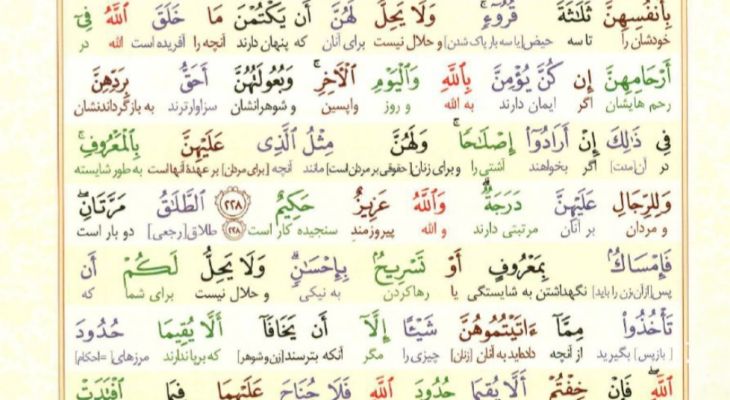 بِأَنفُسِهِنَّ ثَلَـٰثَةَ قُرُوٓءٍ ۚ وَلَا يَحِلُّ لَهُنَّ أَن يَكْتُمْنَ مَا خَلَقَ ٱللَّهُ فِىٓ
خودشان را تا سه حیض[یا سه بار پاک شدن] و حلال نیست برای آنان که پنهان دارند آنچه را آفریده است الله در
أَرْحَامِهِنَّ إِن كُنَّ يُؤْمِنَّ بِٱللَّهِ وَٱلْيَوْمِ ٱلْـَٔاخِرِ ۚ وَبُعُولَتُهُنَّ أَحَقُّ بِرَدِّهِنَّ
رحم هایشان اگر ایمان دارند به الله و روز واپسین و شوهرانشان سزاوارترند به بازگرداندنشان
فِى ذَٰلِكَ إِنْ أَرَادُوٓا۟ إِصْلَـٰحًا ۚ وَلَهُنَّ مِثْلُ ٱلَّذِى عَلَيْهِنَّ بِٱلْمَعْرُوفِ ۚ
در آن[مدت] اگر بخواهند آشتی را و برای زنان[حقوقی بر مردان است] مانند آنچه [برای مردان] بر عهدهٔ آنها است به طور شایسته
وَلِلرِّجَالِ عَلَيْهِنَّ دَرَجَةٌ ۗ وَٱللَّهُ عَزِيزٌ حَكِيمٌ ﴿٢٢٨﴾ ٱلطَّلَـٰقُ مَرَّتَانِ ۖ
و مردان بر آنان مرتبتی دارند و الله پیروزمند سنجیده کار است ﴿۲۲۸﴾ طلاق[رجعی] دو بار است
فَإِمْسَاكٌۢ بِمَعْرُوفٍ أَوْ تَسْرِيحٌۢ بِإِحْسَـٰنٍ ۗ وَلَا يَحِلُّ لَكُمْ أَن
پس[از آن زن را باید] نگهداشتن به شایستگی یا رها کردن به نیکی و حلال نیست برای شما که
تَأْخُذُوا۟ مِمَّآ ءَاتَيْتُمُوهُنَّ شَيْـًٔا إِلَّآ أَن يَخَافَآ أَلَّا يُقِيمَا حُدُودَ
[باز پس] بگیرید از آنچه داده‌اید به آنان [زنان] چیزی را مگر آنکه بترسند[زن و شوهر] که برپا ندارند مرزهای[=احکام]
ٱللَّهِ ۖ فَإِنْ خِفْتُمْ أَلَّا يُقِيمَا حُدُودَ ٱللَّهِ فَلَا جُنَاحَ عَلَيْهِمَا فِيمَا ٱفْتَدَتْ